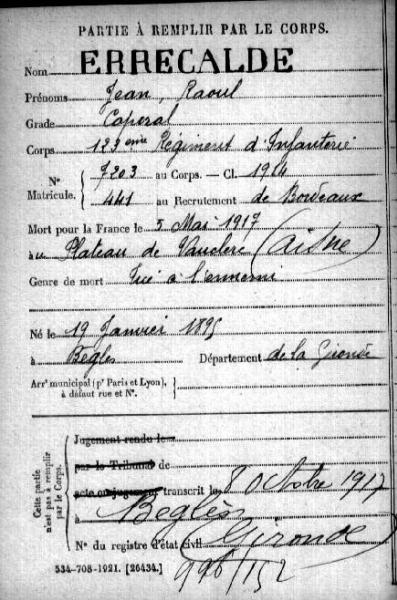 PARTIE À REMPLIR PAR LE CORPS.
Nom ERRECALDE
Prénoms Jean, Raoul
Grade Caporal
Corps 123 eme Régiment d'Infanterie
N° Matricule. 7203 au Corps. — Cl. 1914
441 au Recrutement de Bordeaux
Mort pour la France le 5 Mai 1917
au Plateau de Vauclerc (Aisne)
Genre de mort Tué à l'ennemi
Né le 19 Janvier 1895
à Bègles Département de la Gironde
Arrt municipal (pr Paris et Lyon), à défaut rue et N°.
Cette partie n'est pas à remplir par le Corps.
Jugement rendu le
par le Tribunal de
acte ou jugement transcrit le 8 Octobre 1917
à Bègles
N° du registre d'état civil (Gironde)
996/152
534-708-1921. [26434.]